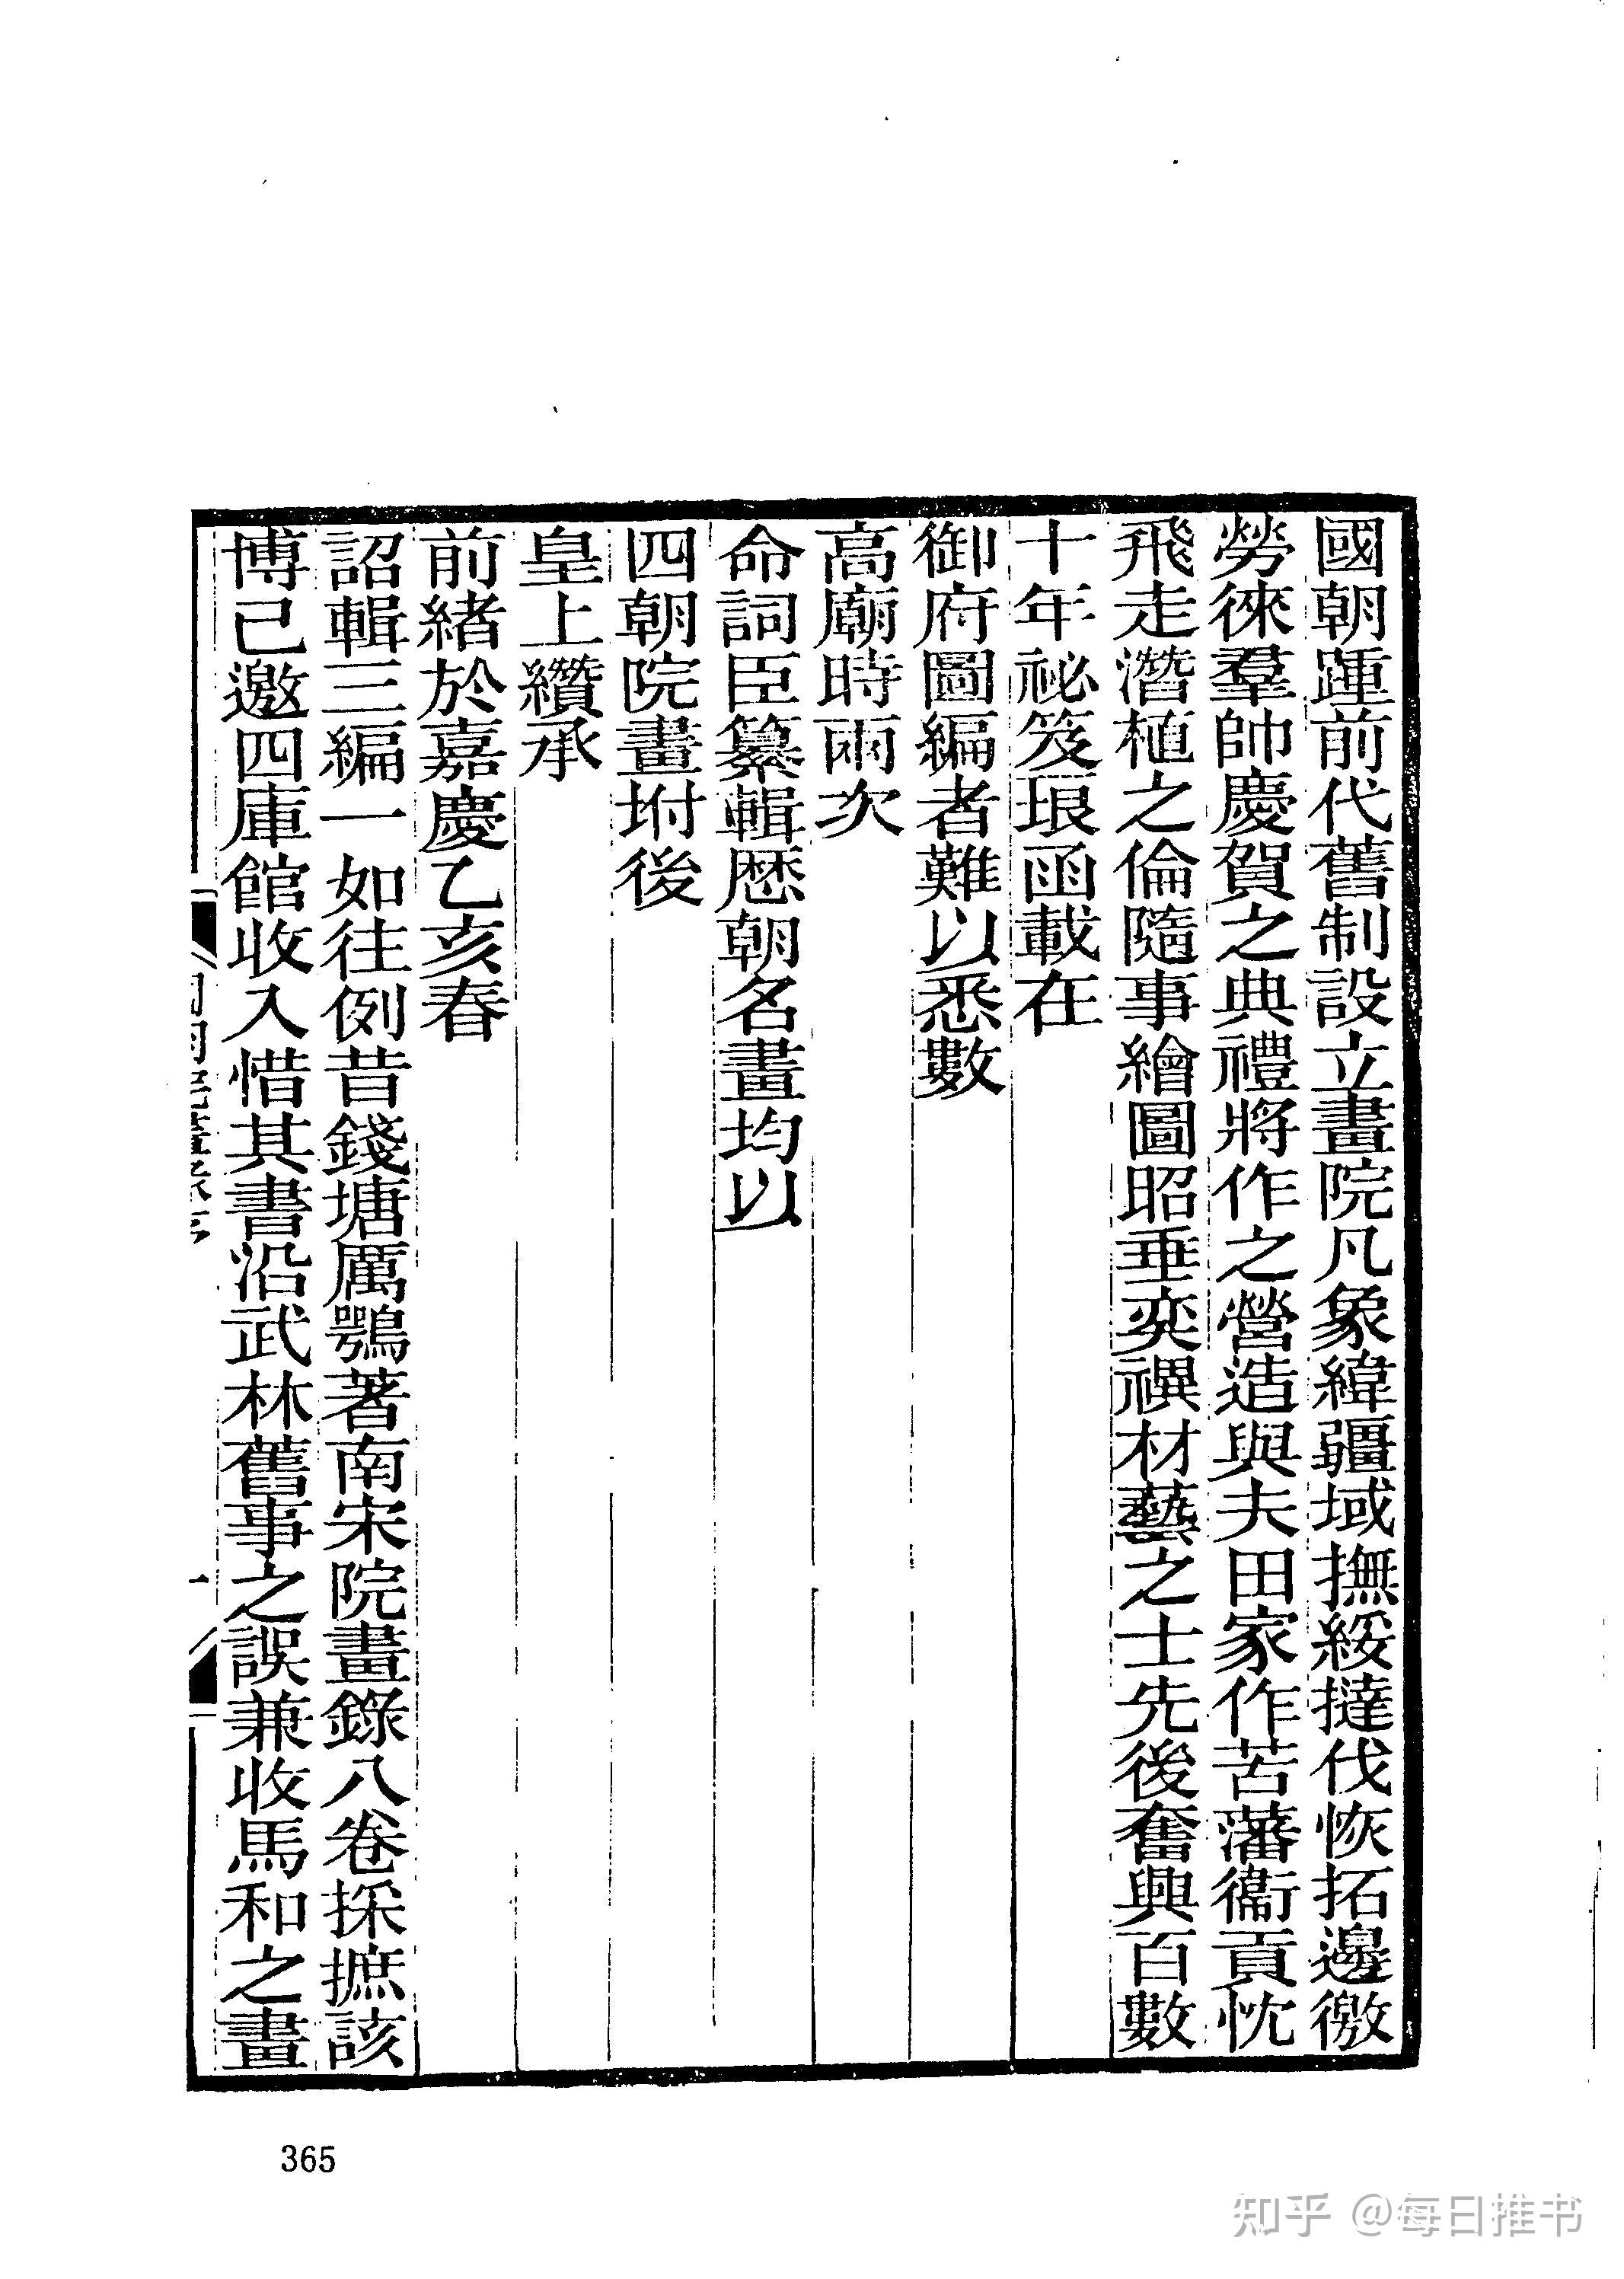 國朝踵前代舊制設立畫院凡象緯疆域撫綏撻伐恢拓邊徼
勞徠羣帥慶賀之典禮將作之營造與夫田家作苦藩衞貢忱
飛走潛植之倫隨事繪圖昭垂奕禩材藝之士先後奮興百數
十年祕笈琅函載在
御府圖編者難以悉數
高廟時兩次
命詞臣纂輯歷朝名畫均以
四朝院畫坿後
皇上纘承
前緒於嘉慶乙亥春
詔輯三編一如往例昔錢塘厲鶚著南宋院畫錄八卷採摭該
博已邀四庫館收入惜其書沿武林舊事之誤兼收馬和之畫
365
知乎 @每日推书